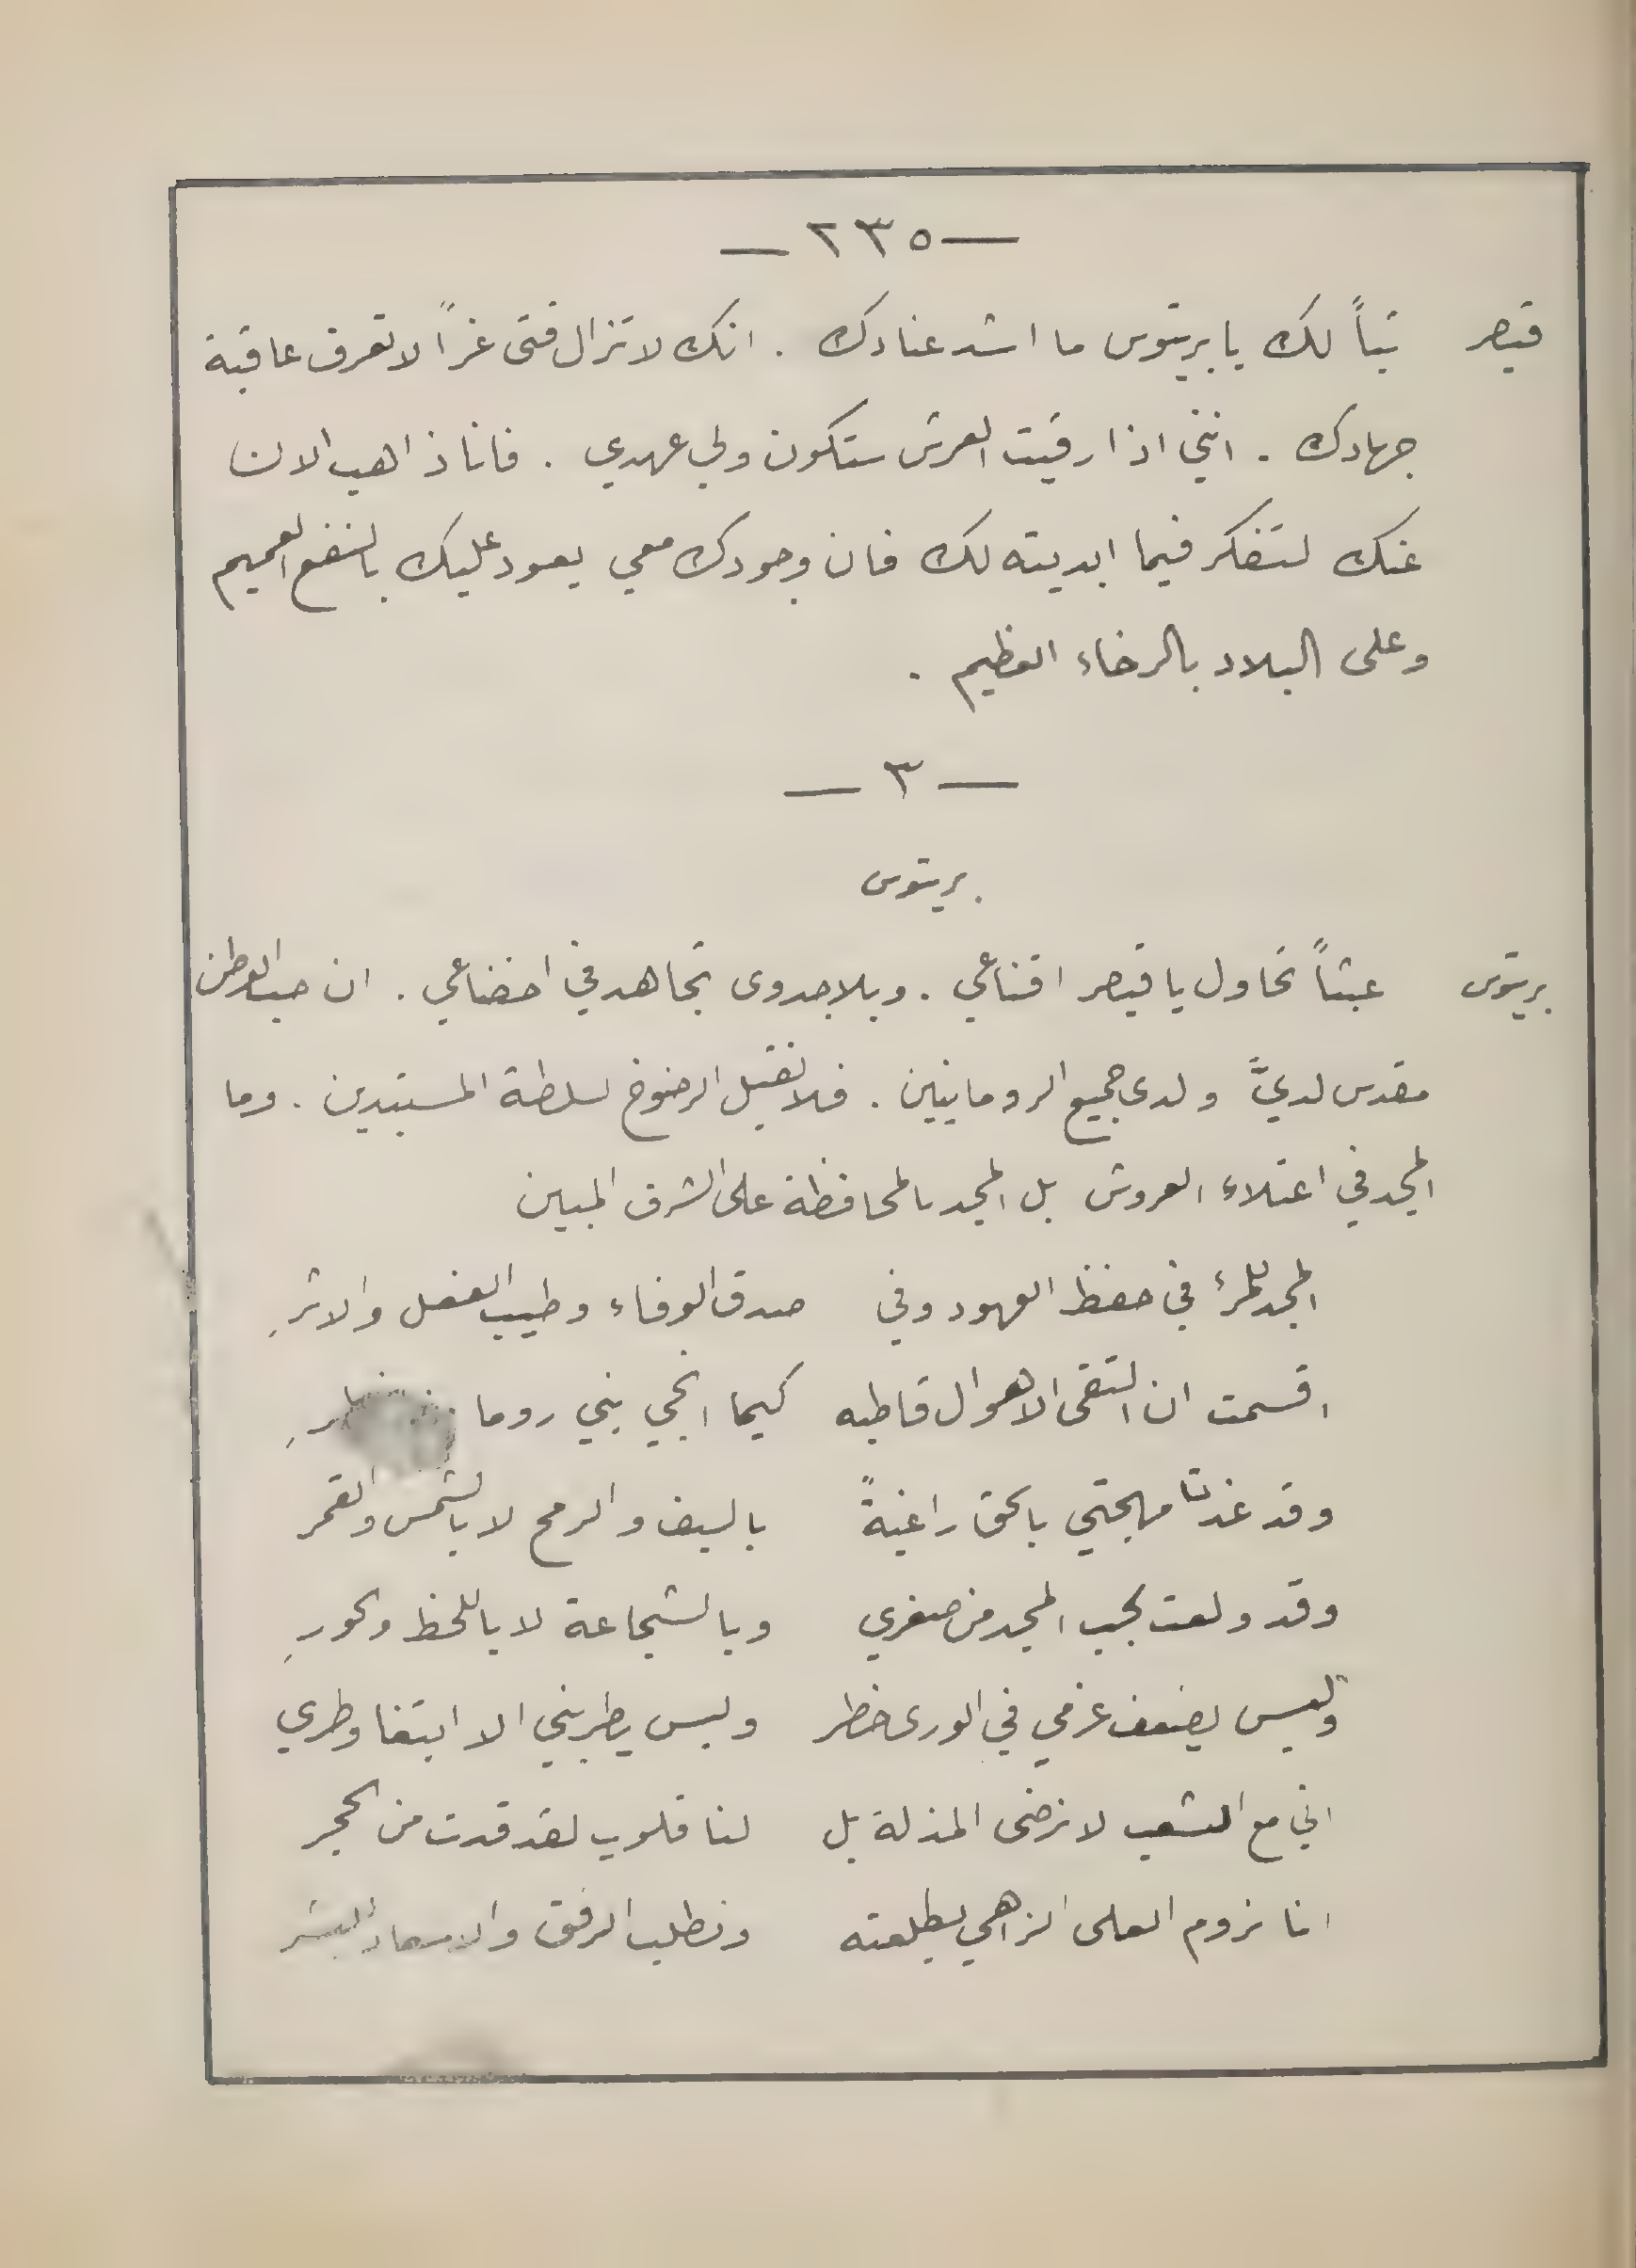 — ٢٣٥ —
قيصر تباً لك يا بريتوس ما اشد عنادك . انك لا تزال فتى غراً لا تعرف عاقبة
جهادك . انني اذا رقيت العرش ستكون ولي عهدي . فانا ذاهب الان
عنك لتفكر فيما ابديته لك فان وجودك معي يعود عليك بالنفع العميم
وعلى البلاد بالرخاء العظيم .
— ٣ —
بريتوس
بريتوس عبثاً تحاول يا قيصر اقناعي . وبلا جدوى تجاهد في اخضاعي . ان حب الوطن
مقدس لديَّ ولدى جميع الرومانيين . فلا نقبل الرضوخ لسلطة المستبدين . وما
المجد في اعتلاء العروش بل المجد بالمحافظة على الشرف المبين
المجد للمرء في حفظ العهود وفي صدق الوفاء وطيب الفعل والاثرِ
اقسمت ان التقى الاهوال قاطبه كيما انجي بني روما
وقد غدت مهجتي بالحق راغبةً بالسيف والرمح لا بالشمس والقمر
وقد ولعت بحب المجد من صغري وبالشجاعة لا باللحظ والحورِ
وليس يضعف عزمي في الورى خطر وليس يطربني الا ابتغا وطري
اني مع الشعب لا نرضى المذلة بل لنا قلوب لقد قدت من الحجر
انا نروم العلى الزاهي بطلعته ونطلب الرفق والاسعاد للبشر